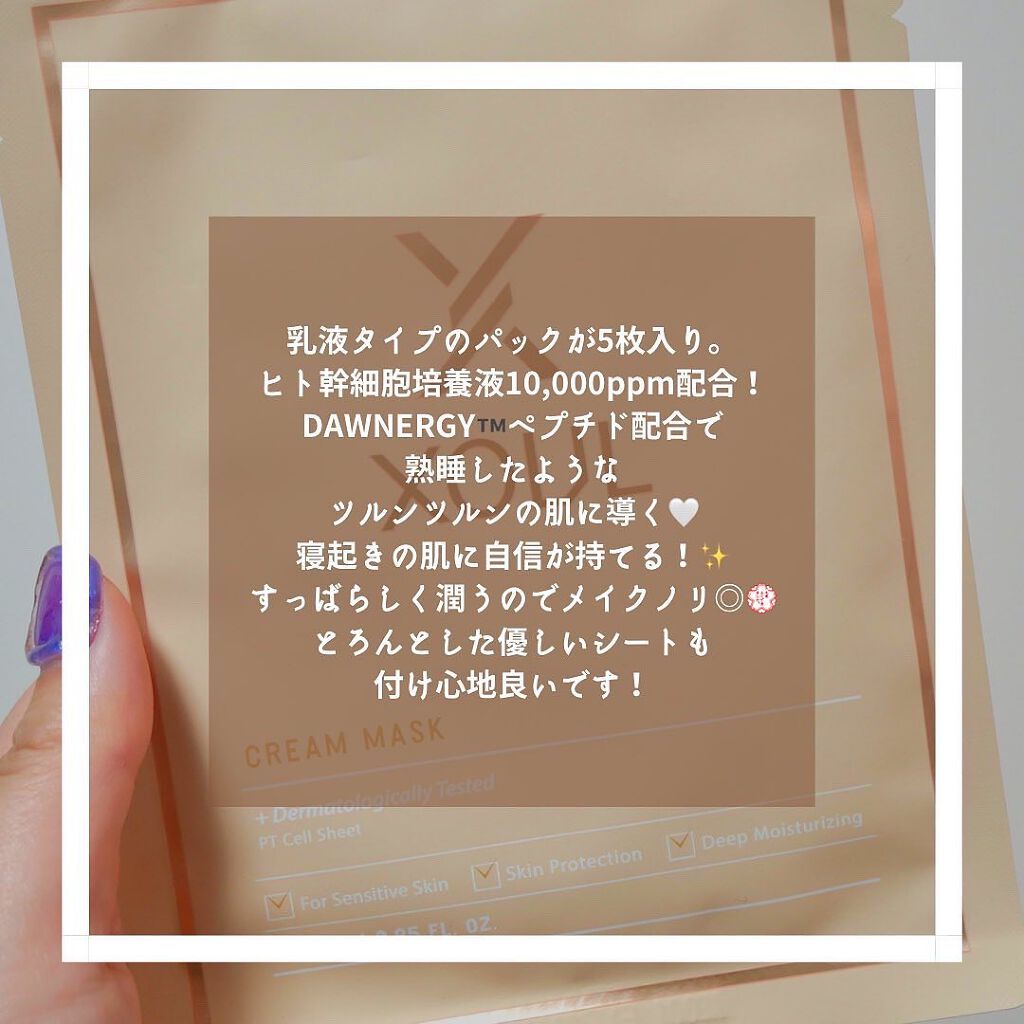 乳液タイプのパックが5枚入り。
ヒト幹細胞培養液10,000ppm配合！
DAWNERGY™ペプチド配合で
熟睡したような
ツルンツルンの肌に導く🤍
寝起きの肌に自信が持てる！✨
すっばらしく潤うのでメイクノリ◎💮
とろんとした優しいシートも
付け心地良いです！
XOUL
CREAM MASK
+Dermatologically Tested
PT Cell Sheet
For Sensitive Skin Skin Protection Deep Moisturizing
0.95 FL. OZ.